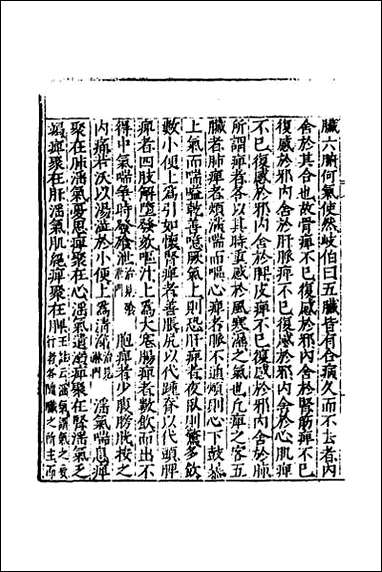 臟六腑何氣使然岐伯曰五臟皆有合病久而不去者內
舍於其合也故骨痺不已復感於邪內舍於腎筋痺不已
復感於邪內舍於肝脉痺不已復感於邪內舍於心肌痺
不已復感於邪內舍於脾皮痺不已復感於邪內舍於肺
所謂痺者各以其時重感於風寒濕之氣也凡痺之客五
臟者肺痺者煩滿喘而嘔心痺者脉不通煩則心下鼓暴
上氣而喘嗌乾善噫厥氣上則恐肝痺者夜臥則驚多飲
數小便上爲引如懷腎痺者善脹尻以代踵脊以代頭脾
痺者四肢解墮發欬嘔汁上爲大塞腸痺者數飲而出不
得中氣喘爭時發飱泄 胞痺者少腹膀胱按之
內痛若沃以湯澁於小便上爲清涕 淫氣喘息痺
聚在肺淫氣憂思痺聚在心淫氣遺溺痺聚在腎淫氣乏
竭痺聚在肝淫氣肌絕痺聚在脾